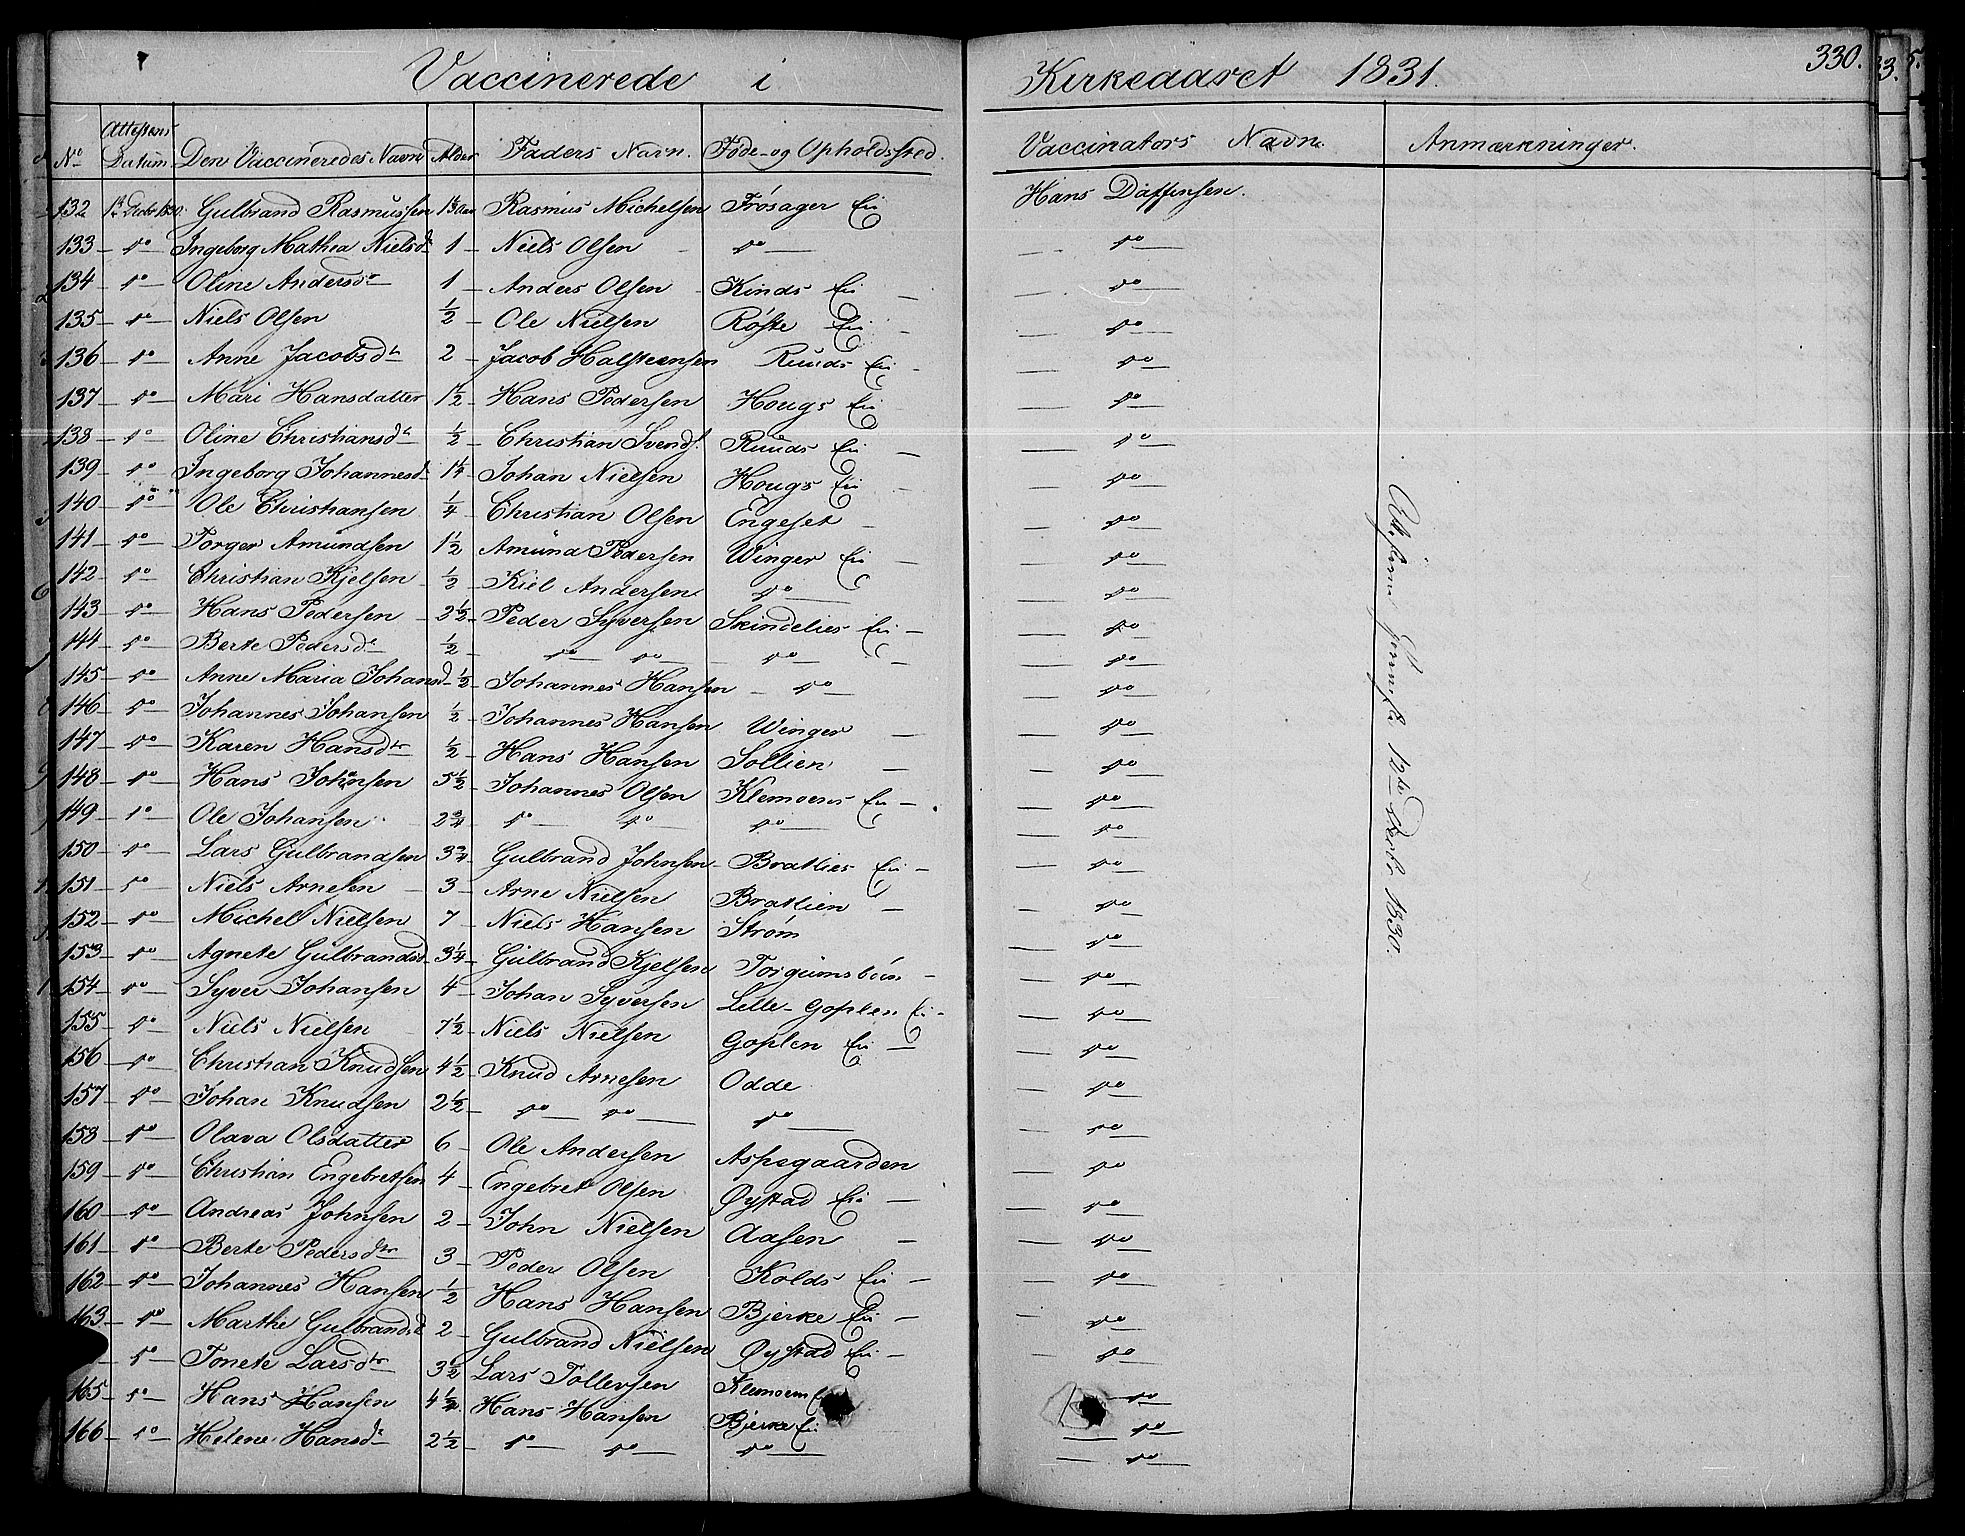 Vaccinerede i Kirkeaaret 1831. 330.
No Attestens Datum. Den Vaccineredes Navn Alder Faders Navn. Føde- og Opholdssted. Vaccinators Navn. Anmærkninger.
132 Gulbrand Rasmussen Rasmus Michelsen Frøsager Ei Hans Daffinsen.
133 do Ingeborg Mathea Nielsdr 1 Niels Olsen do do
134 do Oline Andersdr 1 Anders Olsen Kinds Ei do
135 do Niels Olsen ½ Ole Nielsen Røste Ei do
136 do Anne Jacobsdr 2 Jacob Halsteensen Ruuds Ei do
137 do Mari Hansdatter 1½ Hans Pedersen Hougs Ei do
138 do Oline Christiansdr ½ Christian Svends. Ruuds Ei do
139 do Ingeborg Johannesd 1¼ Johan Nielsen Hougs Ei do
140 do Ole Christiansen ¼ Christian Olsen Engeset do
141 do Torger Amundsen 1½ Amund Pedersen Winger Ei do
142 do Christian Kjelsen ½ Kiel Andersen do do
143 do Hans Pedersen 2½ Peder Syversen Skindelies Ei do
144 do Berte Pedersdr ½ do do do do
145 do Anne Maria Johansd ½ Johannes Hansen do do
146 do Johannes Johansen ½ Johannes Hansen Winger do
147 do Karen Hansdtr ½ Hans Hansen Sollien do
148 do Hans Johansen 5½ Johannes Olsen Klemoens Ei do
149 do Ole Johansen 2¾ do do do do
150 do Lars Gulbrandsen 3¾ Gulbrand Johnsen Bratlies Ei do
151 do Niels Arnesen 3 Arne Nielsen Bratlien do
152 do Michel Nielsen 7 Niels Hansen Strøm do
153 do Agnete Gulbrandsd 3¼ Gulbrand Kjelsen do
154 do Syver Johansen 4 Johan Syversen Lille-Goplen Ei do
155 do Niels Nielsen 7½ Niels Nielsen Goplen Ei do
156 do Christian Knudsen 4½ Knud Arnesen Odde do
157 do Johan Knudsen 2½ do do do do
158 do Olava Olsdatter 6 Ole Andersen Aspegaarden do
159 do Christian Engebretsen 4 Engebret Olsen Øystad Ei do
160 do Andreas Johnsen 2 John Nielsen Aasen do
161 do Berte Pedersdtr 3 Peder Olsen Kolds Ei do
162 do Johannes Hansen ½ Hans Hansen Bjerke Ei do
163 do Marthe Gulbrandsd 2 Gulbrand Nielsen Øystad Ei do
do Tonete Larsdtr 3½ Lars Tollevsen Klemoens Ei do
165 do Hans Hansen 4½ Hans Hansen Bjerke Ei do
166 do Helene Hansdr 2½ do do do do
12te 1830.